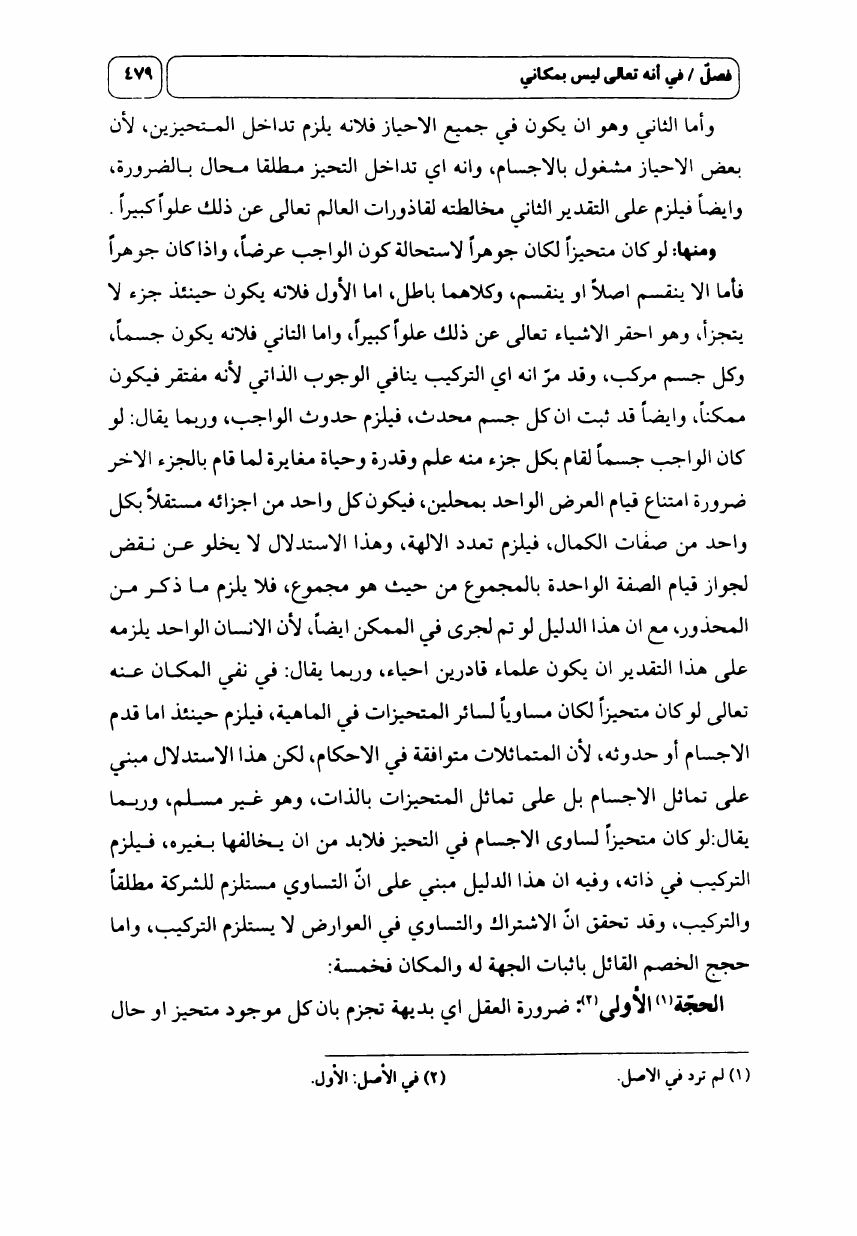 فصلٌ / في أنه تعالى ليس بمكاني ٤٧٩
وأما الثاني وهو ان يكون في جميع الاحياز فلانه يلزم تداخل المتحيزين، لأن
بعض الاحياز مشغول بالاجسام، وانه اي تداخل التحيز مطلقا محال بالضرورة،
وايضاً فيلزم على التقدير الثاني مخالطته لقاذورات العالم تعالى عن ذلك علواً كبيراً .
ومنها: لو كان متحيزاً لكان جوهراً لاستحالة كون الواجب عرضاً، واذا كان جوهراً
فأما الا ينقسم اصلاً او ينقسم، وكلاهما باطل، اما الأول فلانه يكون حينئذ جزء لا
يتجزأ، وهو احقر الاشياء تعالى عن ذلك علواً كبيراً، واما الثاني فلانه يكون جسماً،
وكل جسم مركب، وقد مرّ انه اي التركيب ينافي الوجوب الذاتي لأنه مفتقر فيكون
ممكناً، وايضاً قد ثبت ان كل جسم محدث، فيلزم حدوث الواجب، وربما يقال: لو
كان الواجب جسماً لقام بكل جزء منه علم وقدرة وحياة مغايرة لما قام بالجزء الاخر
ضرورة امتناع قيام العرض الواحد بمحلين، فيكون كل واحد من اجزائه مستقلاً بكل
واحد من صفات الكمال، فيلزم تعدد الالهة، وهذا الاستدلال لا يخلو عن نقض
لجواز قيام الصفة الواحدة بالمجموع من حيث هو مجموع، فلا يلزم ما ذكر من
المحذور، مع ان هذا الدليل لو تم لجرى في الممكن ايضاً، لأن الانسان الواحد يلزمه
على هذا التقدير ان يكون علماء قادرين احياء، وربما يقال: في نفي المكان عنه
تعالى لو كان متحيزاً لكان مساوياً لسائر المتحيزات في الماهية، فيلزم حينئذ اما قدم
الاجسام أو حدوثه، لأن المتماثلات متوافقة في الاحكام، لكن هذا الاستدلال مبني
على تماثل الاجسام بل على تماثل المتحيزات بالذات، وهو غير مسلم، وربما
يقال:لو كان متحيزاً لساوى الاجسام في التحيز فلابد من ان يخالفها بغيره، فيلزم
التركيب في ذاته، وفيه ان هذا الدليل مبني على انّ التساوي مستلزم للشركة مطلقاً
والتركيب، وقد تحقق انّ الاشتراك والتساوي في العوارض لا يستلزم التركيب، واما
حجج الخصم القائل باثبات الجهة له والمكان فخمسة:
الحجّة(١) الأولى(٢): ضرورة العقل اي بديهة تجزم بان كل موجود متحيز او حال
(١) لم ترد في الاصل. (٢) في الأصل: الأول.